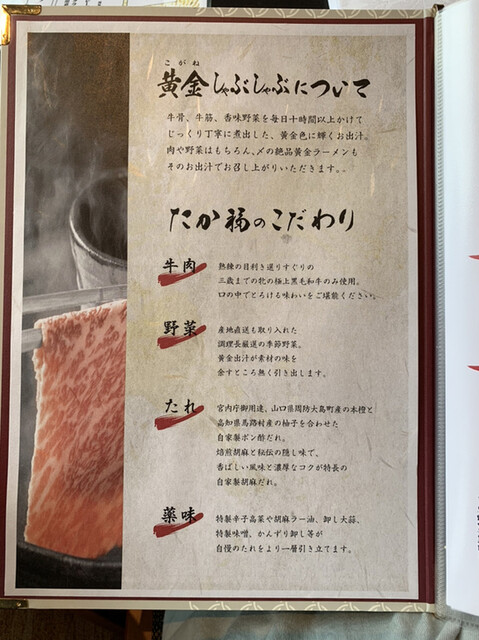 こがね
黄金しゃぶしゃぶについて
牛骨、牛筋、香味野菜を毎日十時間以上かけて
じっくり丁寧に煮出した、黄金色に輝くお出汁。
肉や野菜はもちろん、〆の絶品黄金ラーメンも
そのお出汁でお召し上がりいただきます。
たか福のこだわり
牛肉
熟練の目利き選りすぐりの
三歳までの牝の極上黒毛和牛のみ使用。
口の中でとろける味わいをご堪能ください。
野菜
産地直送も取り入れた
調理長厳選の季節野菜。
黄金出汁が素材の味を
余すところ無く引き出します。
たれ
宮内庁御用達、山口県周防大島町産の本橙と
高知県馬路村産の柚子を合わせた
自家製ポン酢だれ。
焙煎胡麻と秘伝の隠し味で、
香ばしい風味と濃厚なコクが特長の
自家製胡麻だれ。
薬味
特製辛子高菜や胡麻ラー油、卸し大蒜、
特製味噌、かんずり卸し等が
自慢のたれをより一層引き立てます。